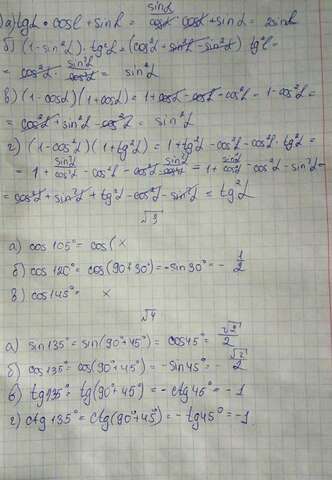 а) tgα · cosα + sinα = sinα/cosα cosα + sinα = 2sinα
б) (1-sin²α) · tg²α = (cos²α + sin²α - sin²α) tg²α =
= cos²α · sin²α/cos²α = sin²α
в) (1-cosα)(1+cosα) = 1+cosα-cosα-cos²α = 1-cos²α =
= cos²α + sin²α - cos²α = sin²α
г) (1-cos²α)(1+tg²α) = 1+tg²α-cos²α-cos²α · tg²α =
= 1 + sin²α/cos²α - cos²α - cos²α sin²α/cos²α = 1 + sin²α/cos²α - cos²α - sin²α =
= cos²α + sin²α + tg²α - cos²α - sin²α = tg²α
√3
а) cos 105° = cos( x
б) cos 120° = cos(90°+30°) = -sin30° = - 1/2
в) cos 145° = x
√4
а) sin 135° = sin(90°+45°) = cos45° = √2/2
б) cos 135° = cos(90°+45°) = -sin45° = - √2/2
в) tg135° = tg(90°+45°) = -ctg45° = -1
г) ctg 135° = ctg(90°+45°) = -tg45° = -1.